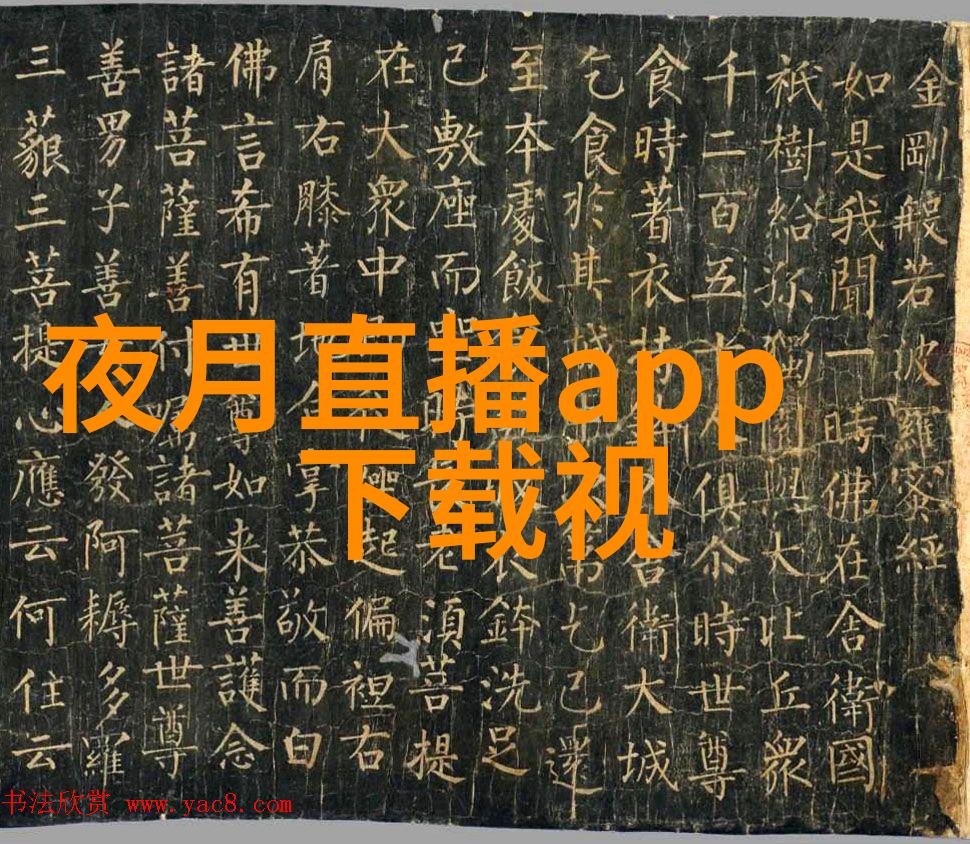 金剛般若波羅蜜經
如是我聞一時佛在舍衛國
祇樹給孤獨園與大比丘眾
千二百五十人俱尒時世尊
食時著衣持舍衛大城
乞食於其城乞已還
至本處飯食衣鉢洗足
已敷座而坐時長老須菩提
在大眾中即從座起偏袒右
肩右膝著地合掌恭敬而白
佛言希有世尊如来善護念
諸菩薩善付囑諸菩薩世尊
善男子善女人發阿耨多羅
三藐三菩提心應云何住云
夜月直播app
下载视
书法欣赏 www.yac8.com